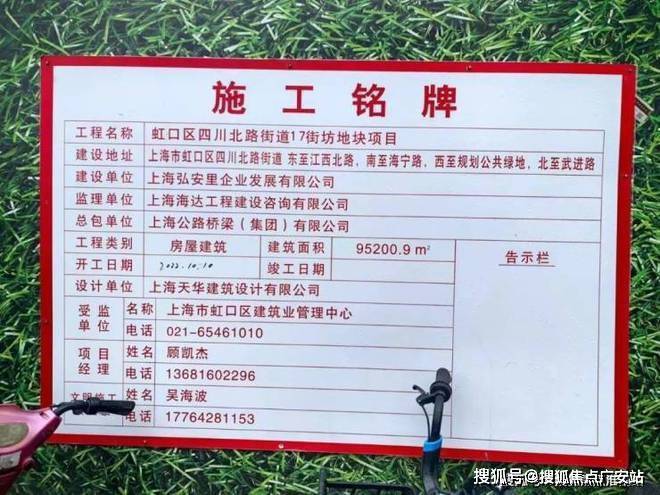 施工铭牌
工程名称 虹口区四川北路街道17街坊地块项目
建设地址 上海市虹口区四川北路街道 东至江西北路，南至海宁路，西至规划公共绿地，北至武进路
建设单位 上海弘安里企业发展有限公司
监理单位 上海海达工程建设咨询有限公司
总包单位 上海公路桥梁（集团）有限公司
工程类别 房屋建筑 建筑面积 95200.9 m²
告示栏
开工日期 2022.10.10 竣工日期
设计单位 上海天华建筑设计有限公司
受监单位 名称 上海市虹口区建筑业管理中心
电话 021-65461010
项目经理 姓名 顾凯杰
电话 13681602296
文明施工 姓名 吴海波
电话 17764281153
搜狐号@搜狐焦点广安站